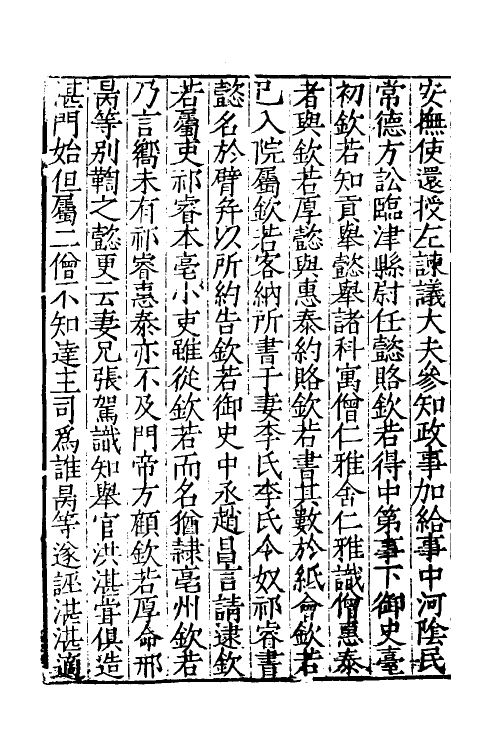 安撫使還授左諫議大夫參知政事加給事中河陰民
常德方訟臨津縣尉任懿賂欽若得中第事下御史臺
初欽若知貢舉懿舉諸科寓僧仁雅舍仁雅識僧惠秦
者與欽若厚懿與惠秦約賂欽若書其數於紙會欽若
已入院屬欽若客納所書于妻李氏李氏令奴祁睿書
懿名於臂并以所約告欽若御史中丞趙昌言請逮欽
若屬吏祁睿本亳小吏雖從欽若而名猶隸亳州欽若
乃言嚮未有祁睿惠秦亦不及門帝方顧欽若厚命邢
昺等別鞫之懿更云妻兄張駕識知舉官洪湛嘗俱造
湛門始但屬二僧不知達主司為誰昺等遂誣湛湛適